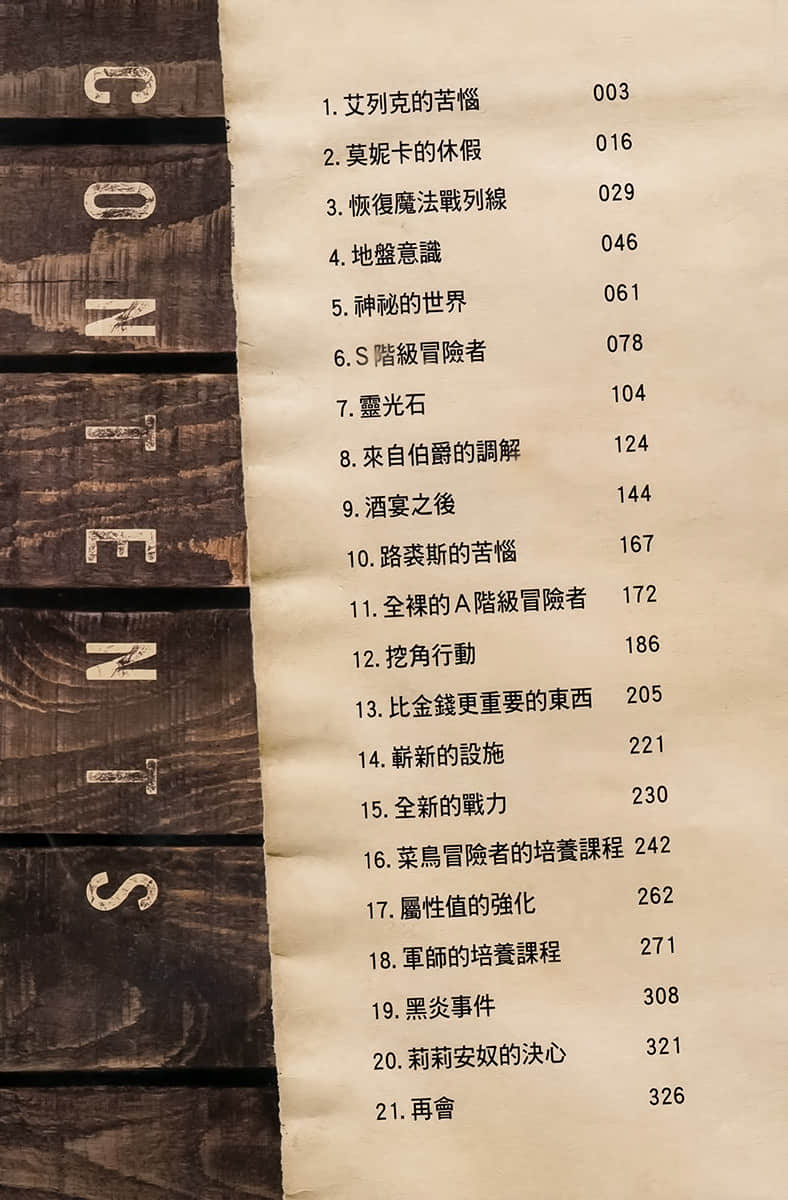 CONTENTS
1. 艾列克的苦惱 003
2. 莫妮卡的休假 016
3. 恢復魔法戰列線 029
4. 地盤意識 046
5. 神祕的世界 061
6. S階級冒險者 078
7. 靈光石 104
8. 來自伯爵的調解 124
9. 酒宴之後 144
10. 路裘斯的苦惱 167
11. 全裸的A階級冒險者 172
12. 挖角行動 186
13. 比金錢更重要的東西 205
14. 嶄新的設施 221
15. 全新的戰力 230
16. 菜鳥冒險者的培養課程 242
17. 屬性值的強化 262
18. 軍師的培養課程 271
19. 黑炎事件 308
20. 莉莉安奴的決心 321
21. 再會 326